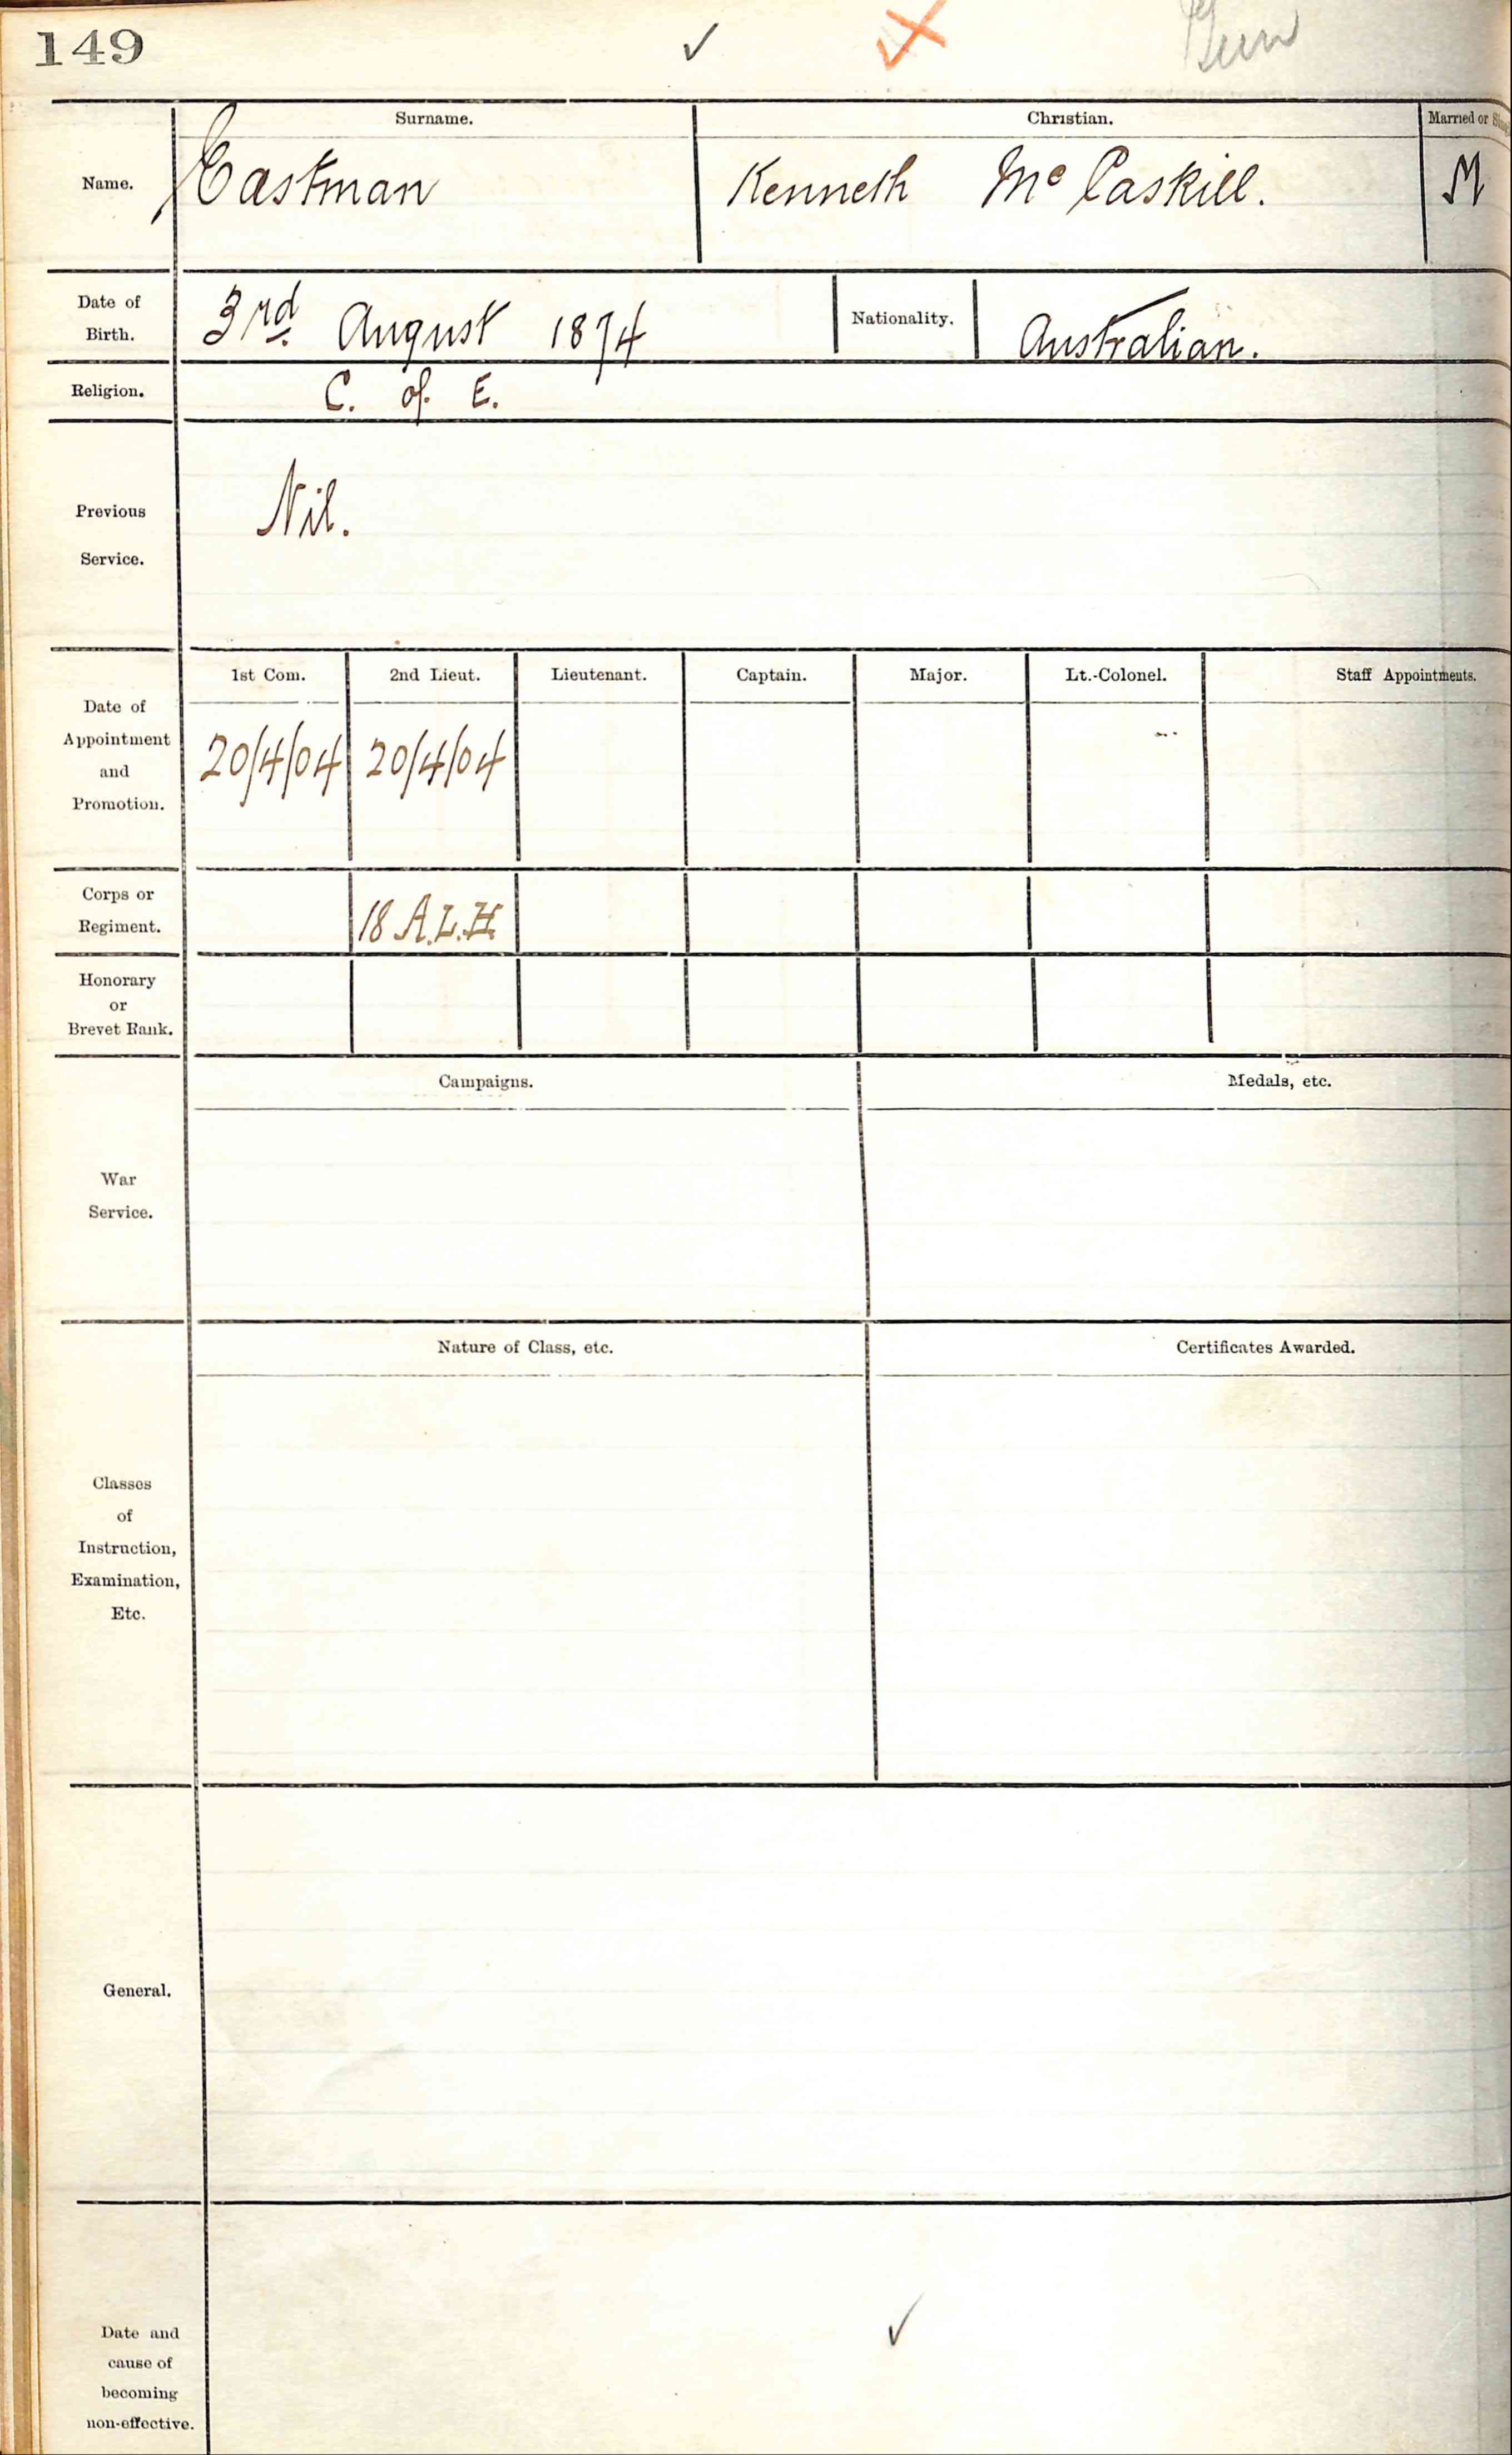 149
Surname. Christian. Married or
Name. Eastman Kenneth Mc Caskill. M
Date of Birth. 3rd. August 1874 Nationality. Australian.
Religion. C. of E.
Previous Service. Nil.
1st Com. 2nd Lieut. Lieutenant. Captain. Major. Lt.-Colonel. Staff Appointments.
Date of Appointment and Promotion. 20/4/04 20/4/04
Corps or Regiment. 18 A.L.H.
Honorary or Brevet Rank.
Campaigns. Medals, etc.
War Service.
Nature of Class, etc. Certificates Awarded.
Classes of Instruction, Examination, Etc.
General.
Date and cause of becoming non-effective.